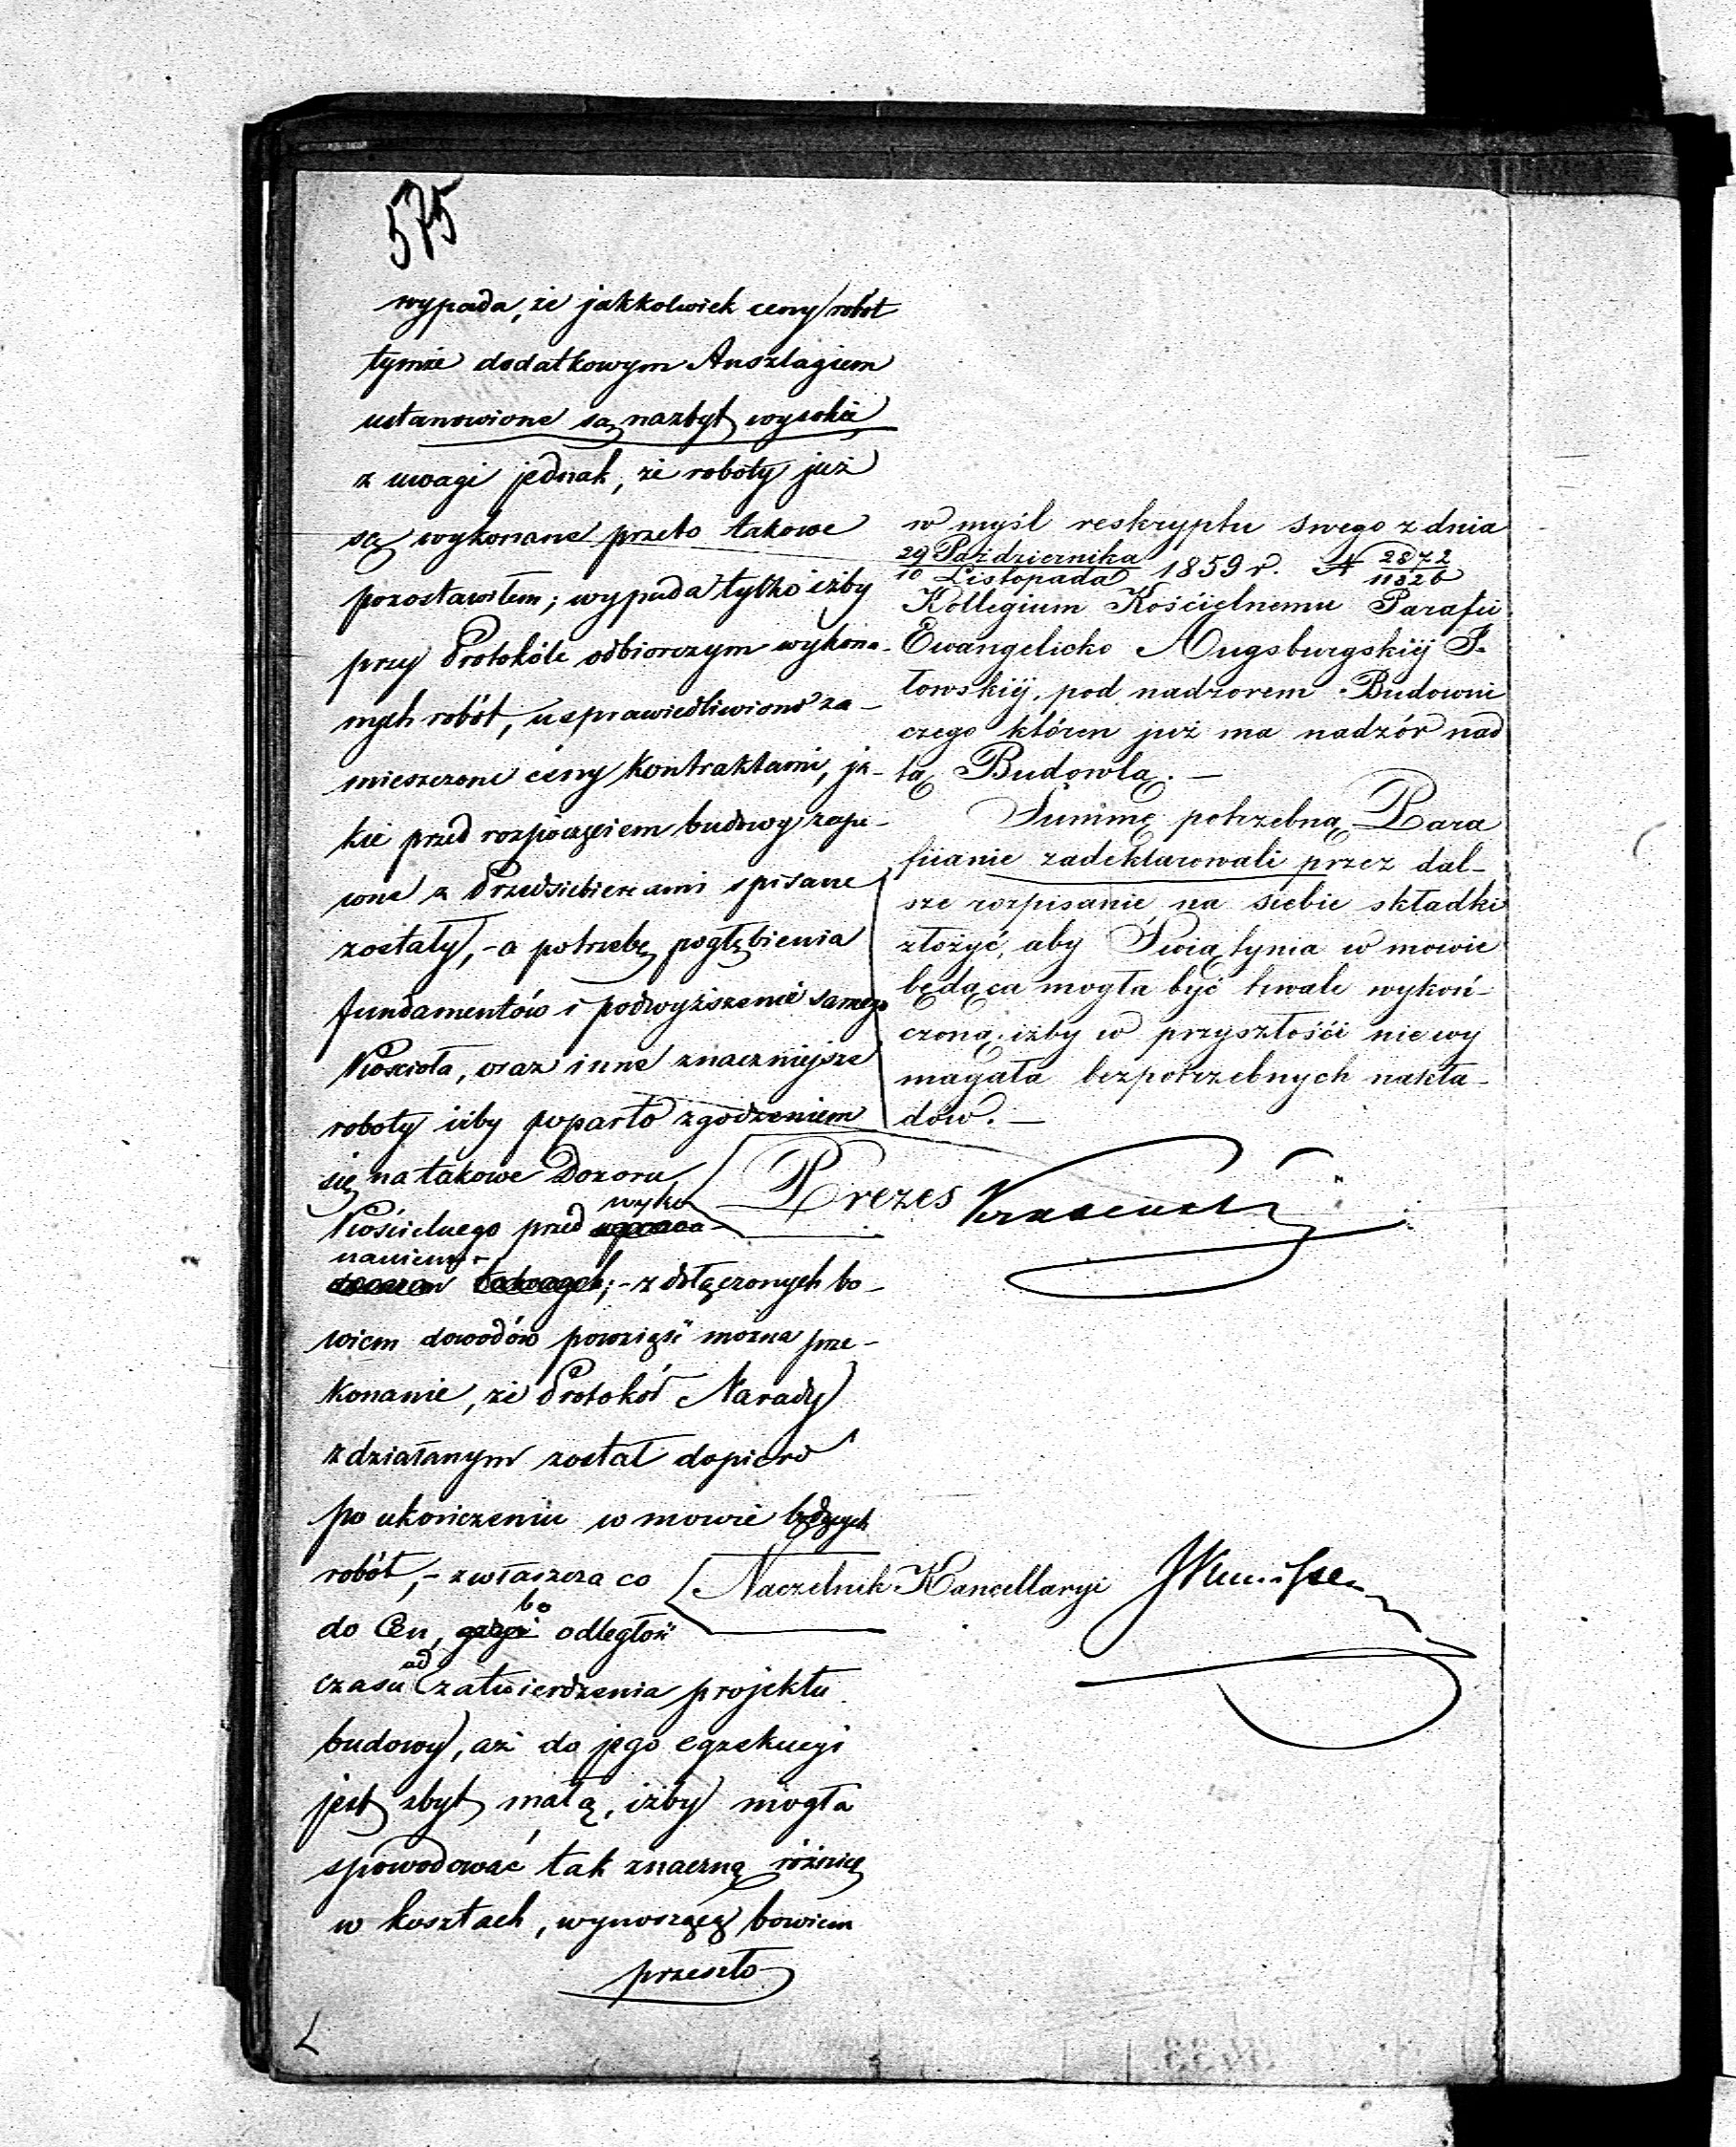 575
wypada, że jakkolwiek ceny robót
tymże dodatkowym Anszlagiem
ustanowione są nazbyt wysokie
z uwagi jednak, że roboty już
są wykonane przeto takowe
pozostawiłem; wypada tylko iżby
przy Protokóle odbiorczym wykona-
nych robót, usprawiedliwiono za-
mieszczone ceny kontraktami, ja-
kie przed rozpoczęciem budowy zape-
wne z Przedsiebiercami spisane
zostały, - a potrzebę pogłębienia
fundamentów i podwyższenie samego
Kościoła, oraz inne znaczniejsze
roboty iżby poparto zgodzeniem
się na takowe Dozoru
Kościelnego przed wyko
naniem
; - z dołączonych bo-
wiem dowodów powziąść można prze-
konanie, że Protokół Narady
zdziałanym został dopiero
po ukończeniu w mowie będących
robót, - zwłaszcza co
do Cen, bo odległość
czasu od zatwierdzenia projektu
budowy, aż do jego egzekucyi
jest zbyt małą, iżby mogła
spowodować tak znaczną różnicę
w kosztach, wynoszącą bowiem
przeszło
w myśl reskryptu swego z dnia
29 Października / 10 Listopada 1859 r. N 2872 / 11826
Kollegium Kościelnemu Parafii
Ewangelicko Augsburgskiéj I-
łowskiéj, pod nadzorem Budowni
czego któren już ma nadzór nad
tą Budowlą. —
Summę potrzebną Para
fiianie zadeklarowali przez dal-
sze rozpisanie na siebie składki
złożyć, aby Swiątynia w mowie
będąca mogła być trwale wykoń-
czoną, iżby w przyszłości nie wy
magała bezpotrzebnych nakła-
dów. —
Prezes
Naczelnik Kancellaryi